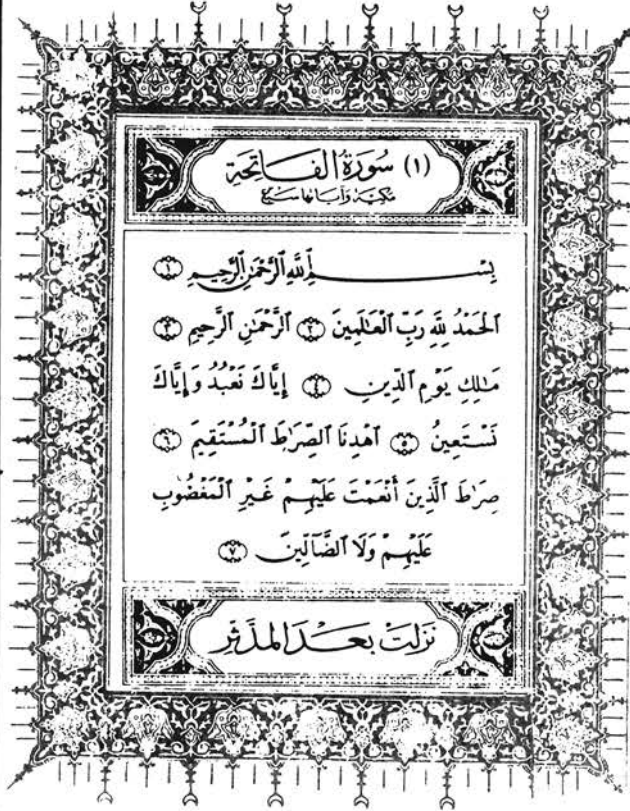 (١) سُورَةُ الفَاتِحَة
مكية وآياتها سبع
بِسْمِ ٱللَّهِ ٱلرَّحْمَٰنِ ٱلرَّحِيمِ ١
ٱلْحَمْدُ لِلَّهِ رَبِّ ٱلْعَٰلَمِينَ ٢ ٱلرَّحْمَٰنِ ٱلرَّحِيمِ ٣
مَٰلِكِ يَوْمِ ٱلدِّينِ ٤ إِيَّاكَ نَعْبُدُ وَإِيَّاكَ
نَسْتَعِينُ ٥ ٱهْدِنَا ٱلصِّرَٰطَ ٱلْمُسْتَقِيمَ ٦
صِرَٰطَ ٱلَّذِينَ أَنْعَمْتَ عَلَيْهِمْ غَيْرِ ٱلْمَغْضُوبِ
عَلَيْهِمْ وَلَا ٱلضَّآلِّينَ ٧
نَزَلَتْ بَعْدَ المدَّثِّر